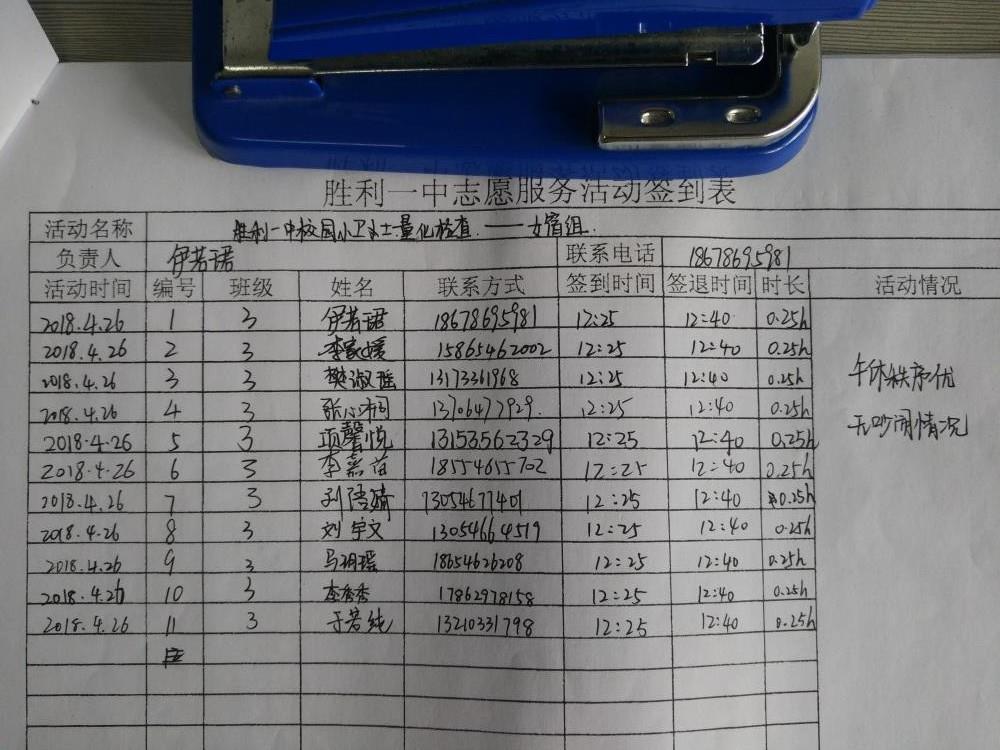 胜利一中志愿服务活动签到表
活动名称 胜利一中校园小卫士量化检查——女宿组
负责人 伊若珺 联系电话 18678695981
活动时间 编号 班级 姓名 联系方式 签到时间 签退时间 时长 活动情况
2018.4.26 1 3 伊若珺 18678695981 12:25 12:40 0.25h
2018.4.26 2 3 李家媛 15865462002 12:25 12:40 0.25h
2018.4.26 3 3 樊淑瑶 13173361968 12:25 12:40 0.25h
午休秩序优
2018.4.26 4 3 张心桐 13706477929. 12:25 12:40 0.25h
无吵闹情况
2018.4.26 5 3 项馨悦 13153562329 12:25 12:40 0.25h
2018.4.26 6 3 李嘉苗 18554655702 12:25 12:40 0.25h
2018.4.26 7 3 13054677401 12:25 12:40 0.25h
2018.4.26 8 3 刘宇文 13054664519 12:25 12:40 0.25h
2018.4.26 9 3 马玥瑶 18654626208 12:25 12:40 0.25h
2018.4.26 10 3 李秀秀 17862978158 12:25 12:40 0.25h
2018.4.26 11 3 于若纯 13210331798 12:25 12:40 0.25h